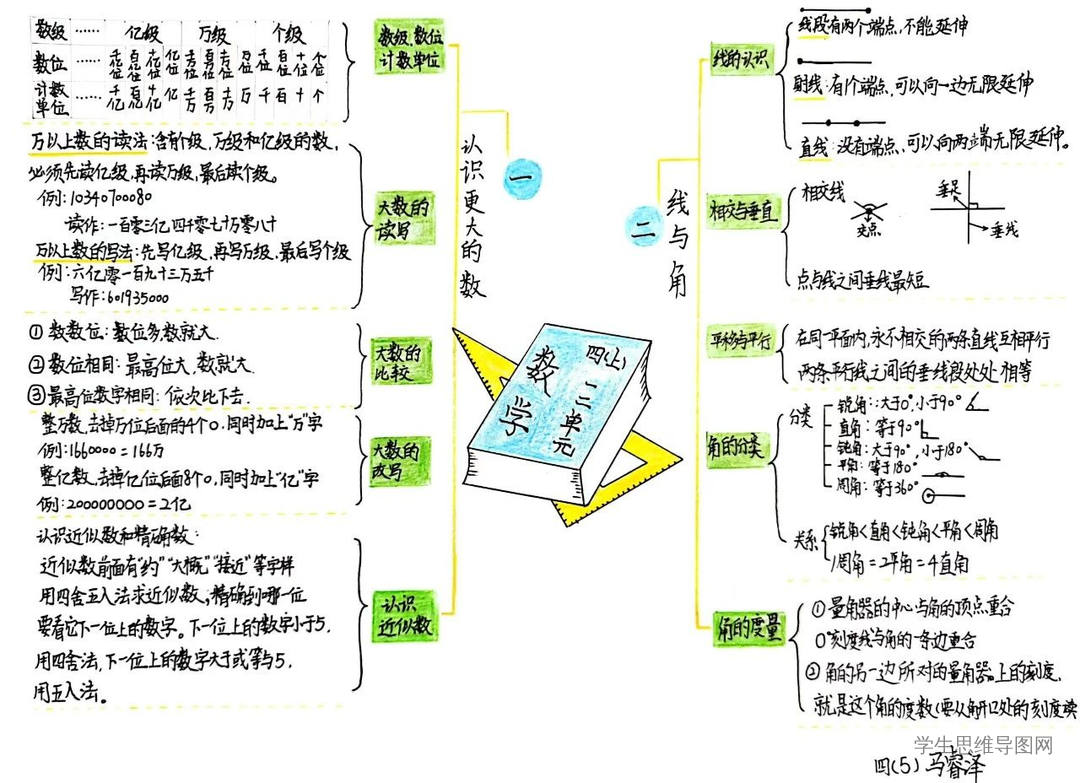 数级 …… 亿级 万级 个级
数位 …… 千亿位 百亿位 十亿位 亿位 千万位 百万位 十万位 万位 千位 百位 十位 个位
计数单位 …… 千亿 百亿 十亿 亿 千万 百万 十万 万 千 百 十 个
数级、数位
计数单位
万以上数的读法:含有个级,万级和亿级的数,
必须先读亿级,再读万级,最后读个级。
例:10340700080
读作:一百零三亿四千零七十万零八十
万以上数的写法:先写亿级,再写万级,最后写个级
例:六亿零一百九十三万五千
写作:601935000
大数的
读写
① 数数位:数位多数就大.
② 数位相同:最高位大,数就大.
③ 最高位数字相同:依次比下去.
大数的
比较
整万数,去掉万位后面的4个0,同时加上“万”字
例:1660000=166万
整亿数,去掉亿位后面8个0,同时加上“亿”字
例:200000000=2亿
大数的
改写
认识近似数和精确数:
近似数前面有“约”“大概”“接近”等字样
用四舍五入法求近似数,精确到哪一位
要看它下一位上的数字。下一位上的数字小于5,
用四舍法,下一位上的数字大于或等与5,
用五入法。
认识
近似数
一
认识更大的数
数学
四(上)
一二单元
二
线与角
线的认识
线段有两个端点,不能延伸
射线:有1个端点,可以向一边无限延伸
直线:没有端点,可以向两端无限延伸。
相交与垂直
相交线
交点
垂足
垂线
点与线之间垂线最短
平移与平行
在同一平面内,永不相交的两条直线互相平行
两条平行线之间的垂线段处处相等
角的分类
分类
锐角:大于0°,小于90°
直角:等于90°
钝角:大于90°,小于180°
平角:等于180°
周角:等于360°
关系
锐角<直角<钝角<平角<周角
1周角=2平角=4直角
角的度量
① 量角器的中心与角的顶点重合
0°刻度线与角的一条边重合
② 角的另一边所对的量角器上的刻度,
就是这个角的度数(要从角开口处的刻度读
学生思维导图网
四(5) 马睿泽